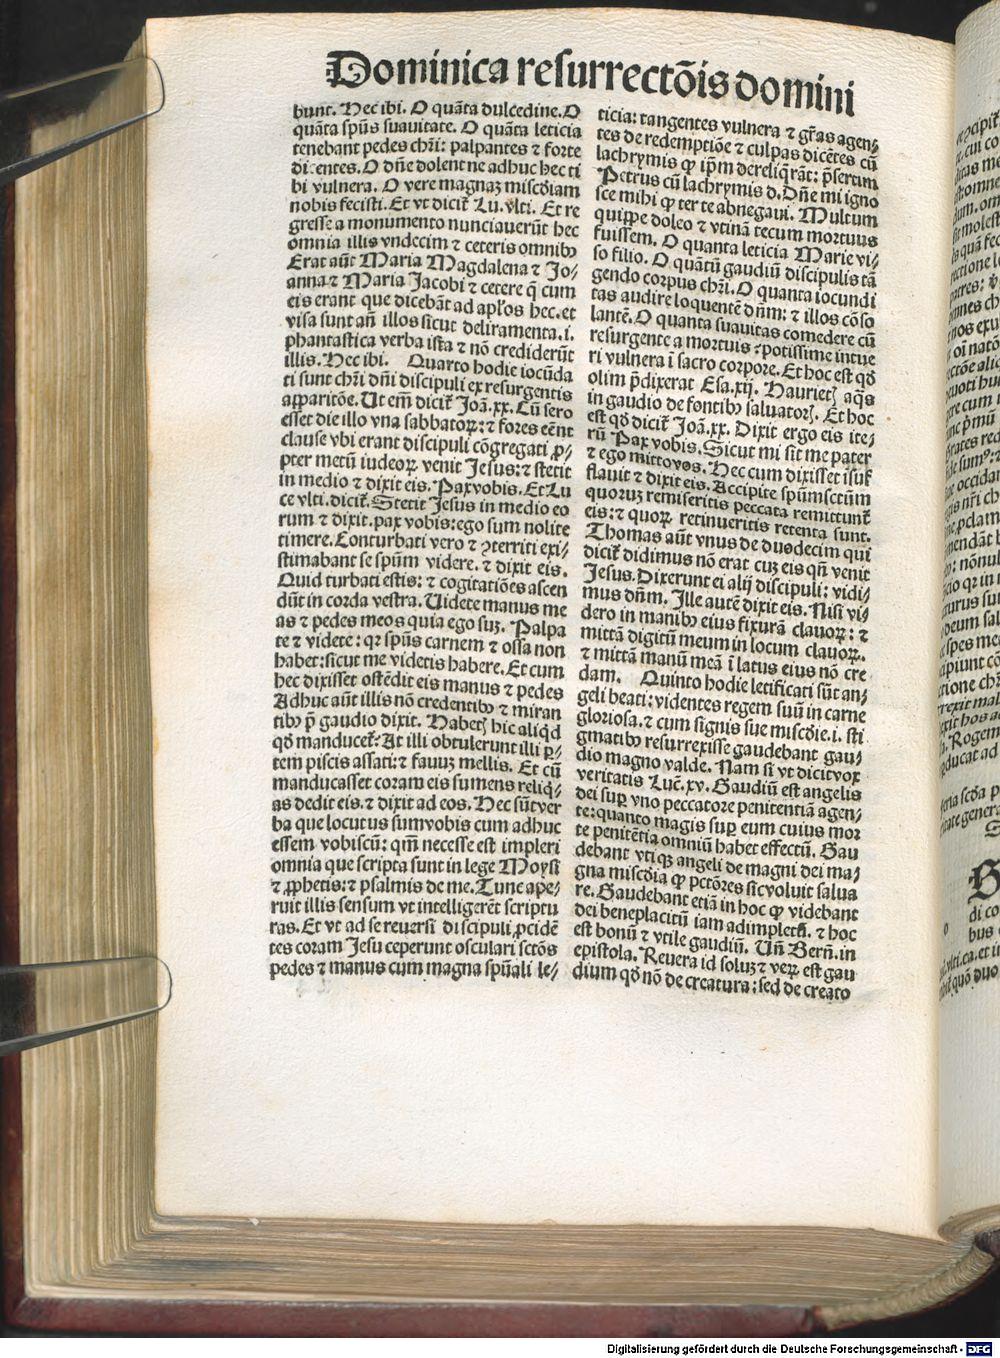 Dominica resurrectõis domini
bunt. Hec ibi. O quãta dulcedine. O
quãta spũs suauitate. O quãta leticia
tenebant pedes chr̃i: palpantes ⁊ forte
dicentes. O dñe dolent ne adhuc hec ti
bi vulnera. O vere magnaȝ misc̃diam
nobis fecisti. Et vt dicit̃ Lu. vlti. Et re
gresse a monumento nunciauerũt hec
omnia illis vndecim ⁊ ceteris omnibꝰ
Erat aũt Maria Magdalena ⁊ Jo⸗
anna ⁊ Maria Jacobi ⁊ cetere q̃ cum
eis erant que dicebãt ad apl̃os hec. et
visa sunt añ illos sicut deliramenta .i.
phantastica verba ista ⁊ nõ crediderũt
illis. Hec ibi. Quarto hodie iocũda
ti sunt chr̃i dñi discipuli ex resurgentis
apparitõe. Ut em̃ dicit̃ Joã. xx. Cũ sero
esset die illo vna sabbatoꝝ: ⁊ fores eẽnt
clause vbi erant discipuli cõgregati ꝓ⸗
pter metũ iudeoꝝ venit Jesus: ⁊ stetit
in medio ⁊ dixit eis. Pax vobis. Et Lu
ce vlti. dicit̃. Stetit Jesus in medio eo
rum ⁊ dixit. pax vobis: ego sum nolite
timere. Conturbati vero ⁊ ꝯterriti exi⸗
stimabant se spũm videre. ⁊ dixit eis.
Quid turbati estis: ⁊ cogitatiões ascen
dũt in corda vestra. Uidete manus me
as ⁊ pedes meos quia ego suȝ. Palpa
te ⁊ videte: qꝛ spũs carnem ⁊ ossa non
habet: sicut me videtis habere. Et cum
hec dixisset ostẽdit eis manus ⁊ pedes
Adhuc aũt illis nõ credentibꝰ ⁊ miran
tibꝰ p̃ gaudio dixit. Habetꝭ hic aliqd
qð manducet̃: At illi obtulerunt illi ꝑ⸗
tem piscis assati: ⁊ fauuȝ mellis. Et cũ
manducasset coram eis sumens reliq⸗
as dedit eis. ⁊ dixit ad eos. Hec sũt ver
ba que locutus sum vobis cum adhuc
essem vobiscũ: qm̃ necesse est impleri
omnia que scripta sunt in lege Moysi
⁊ ꝓphetis: ⁊ psalmis de me. Tunc ape⸗
ruit illis sensum vt intelligerẽt scriptu
ras. Et vt ad se reuersi discipuli ꝓcidẽ
tes coram Jesu ceperunt osculari sctõs
pedes ⁊ manus cum magna spũali le⸗
ticia: tangentes vulnera ⁊ gr̃as agen⸗
tes de redemptiõe ⁊ culpas dicẽtes cũ
lachrymis ꝙ ip̃m dereliq̃rãt: p̃sertim
Petrus cũ lachrymis d. Dñe mi igno
sce mihi ꝙ ter te abnegaui. Multum
quippe doleo ⁊ vtinã tecum mortuus
fuissem. O quanta leticia Marie vi⸗
so filio. O quãtũ gaudiũ discipulis tã
gendo corpus chr̃i. O quanta iocundi
tas audire loquentẽ dñm: ⁊ illos cõso
lantẽ. O quanta suauitas comedere cũ
resurgente a mortuis ⁊ potissime intue
ri vulnera ĩ sacro corpore. Et hoc est qð
olim p̃dixerat Esa. xij. Haurietꝭ aq̃s
in gaudio de fontibꝰ saluatorꝭ. Et hoc
est qð dicit̃ Joã. xx. Dixit ergo eis ite⸗
rũ Pax vobis. Sicut mi sit me pater
⁊ ego mitto vos. Hec cum dixisset isuf
flauit ⁊ dixit eis. Accipite spũm sctũm
quoruȝ remiseritis peccata remittunt̃
eis: ⁊ quoꝝ retinueritis retenta sunt.
Thomas aũt vnus de duodecim qui
dicit̃ didimus nõ erat cuȝ eis qñ venit
Jesus. Dixerunt ei alij discipuli: vidi⸗
mus dñm. Ille autẽ dixit eis. Nisi vi⸗
dero in manibꝰ eius fixurã clauoꝝ: ⁊
mittã digitũ meum in locum clauoꝝ.
⁊ mittã manũ meã ĩ latus eius nõ cre
dam. Quinto hodie letificati sũt an⸗
geli beati: videntes regem suũ in carne
gloriosa. ⁊ cum signis sue misc̃die .i. sti
gmatibꝰ resurrexisse gaudebant gau⸗
dio magno valde. Nam si vt dicit vox
veritatis Luc̃. xv. Gaudiũ est angelis
dei suꝑ vno peccatore penitentiã agen⸗
te: quanto magis suꝑ eum cuius mor
te penitẽtia omniũ habet effectũ. Gau
debant vtiqȝ angeli de magni dei ma⸗
gna misc̃dia ꝙ pctõres sic voluit salua
re. Gaudebant etiã in hoc ꝙ videbant
dei beneplacitũ iam adimpletũ. ⁊ hoc
est bonũ ⁊ vtile gaudiũ. Uñ Berñ. in
epistola. Reuera id soluȝ ⁊ veꝝ est gau
dium qð nõ de creatura: sed de creato
Digitalisierung gefördert durch die Deutsche Forschungsgemeinschaft - DFG